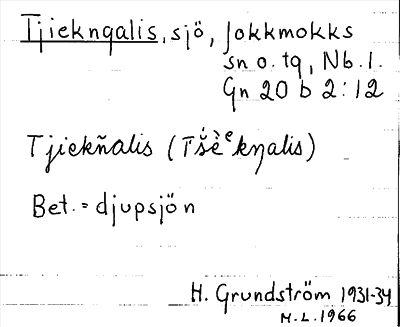 Tjiekngalis, sjö, Jokkmokks
sn o. tg, Nb. l.
Gn 20 b 2:12
Tjiekñalis (Tšè́ᵉkŋalis)
Bet. = djupsjön
H. Grundström 1931-34
M.L. 1966